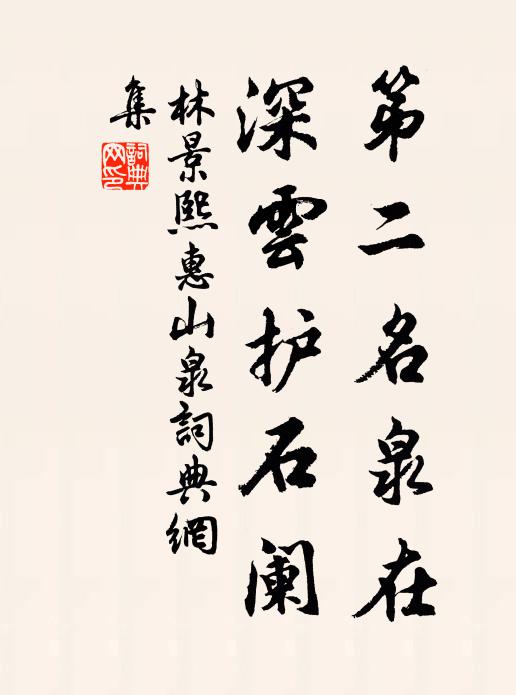 第二名泉在
深雲护石阑
林景熙惠山泉詞典網
集
詞典網印